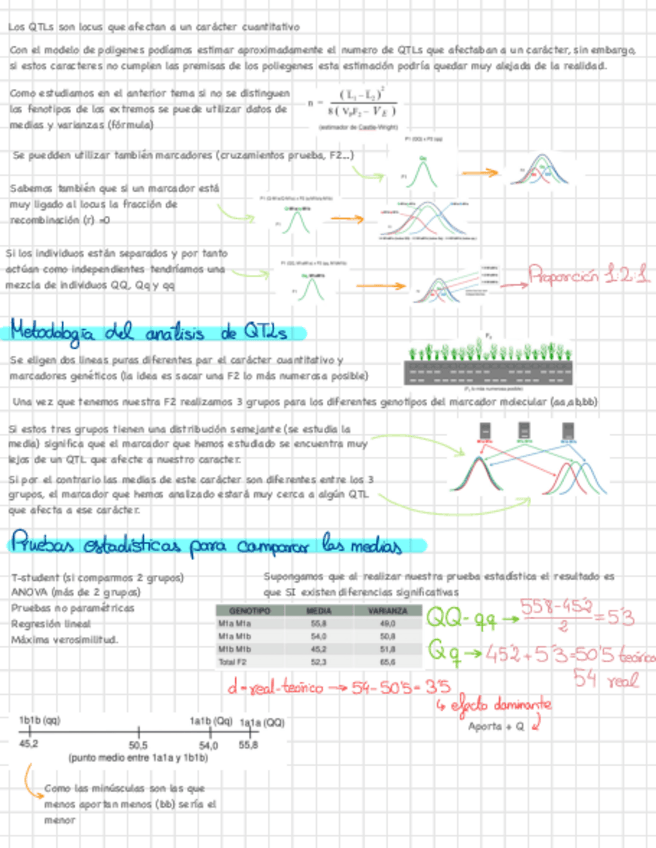 Los QTLs son locus que afectan a un carácter cuantitativo
Con el modelo de poligenes podíamos estimar aproximadamente el numero de QTLs que afectaban a un carácter, sin embargo,
si estos caracteres no cumplen las premisas de los poliegenes esta estimación podría quedar muy alejada de la realidad.
Como estudiamos en el anterior tema si no se distinguen
los fenotipos de los extremos se puede utilizar datos de
medias y varianzas (fórmula)
(estimador de Castle-Wright)
Se puedden utilizar también marcadores (cruzamientos prueba, F2...)
Sabemos también que si un marcador está
muy ligado al locus la fracción de
recombinación (r) =0
Si los individuos están separados y por tanto
actúan como independientes tendríamos una
mezcla de individuos QQ, Qq y qq
Proporción 1:2:1
Metodología del análisis de QTLs
Se eligen dos lineas puras diferentes par el carácter cuantitativo y
marcadores genéticos (la idea es sacar una F2 lo más numerosa posible)
Una vez que tenemos nuestra F2 realizamos 3 grupos para los diferentes genotipos del marcador molecular (aa,ab,bb)
Si estos tres grupos tienen una distribución semejante (se estudia la
media) significa que el marcador que hemos estudiado se encuentra muy
lejos de un QTL que afecte a nuestro caracter.
Si por el contrario las medias de este carácter son diferentes entre los 3
grupos, el marcador que hemos analizado estará muy cerca a algún QTL
que afecta a ese carácter.
Pruebas estadísticas para comparar las medias
T-student (si comparmos 2 grupos)
ANOVA (más de 2 grupos)
Pruebas no paramétricas
Regresión lineal
Máxima verosimilitud.
Supongamos que al realizar nuestra prueba estadística el resultado es
que SI existen diferencias significativas
GENOTIPO MEDIA VARIANZA
M1a M1a 55,8 49,0
M1a M1b 54,0 50,8
M1b M1b 45,2 51,8
Total F2 52,3 65,6
QQ-qq → 558-452 / 2 = 5'3
Qq → 452+5'3=50'5 teórico
54 real
d=real-teórico → 54-50'5= 3'5
↳ efecto dominante
Aporta + Q
1b1b (qq) 1a1b (Qq) 1a1a (QQ)
45,2 50,5 54,0 55,8
(punto medio entre 1a1a y 1b1b)
Como las minúsculas son las que
menos aportan menos (bb) sería el
menor